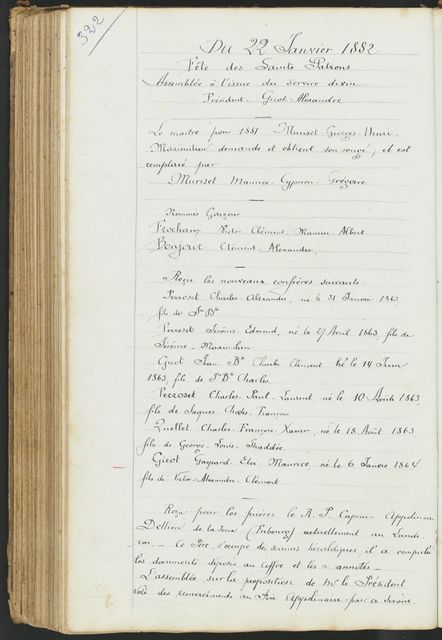 322
Du 22 Janvier 1882
Fête des Saints Patrons
Assemblée à l'issue du Service divin
Président Gicot Alexandre
Le maître pour 1881 Muriset Georges Henri
Maximilien demande et obtient son congé, il est
remplacé par
Muriset Maurice Cyprien Grégoire
Nommés Garçons
Frochaux Victor Clément Maurice Albert
Bonjour Clément Alexandre.
Reçu les nouveaux confrères suivants
Perroset Charles Alexandre, né le 31 Janvier 1863
fils de Jn Bte
Perroset Jérôme Edmond, né le 27 Avril 1863, fils de
Jérôme Maximilien
Gicot Jean Bte Charles Clément né le 14 Juin
1863, fils de Jn Bte Charles
Perroset Charles Paul Laurent né le 10 Août 1863
fils de Jaques Charles François
Quellet Charles François Xavier, né le 18 Août 1863
fils de George Louis Thaddée
Gicot Gaspard Eloi Maurice né le 6 Janvier 1864
fils de Victor Alexandre Clément
Reçu pour les prières le R. P. Capucin Appolinaire
Dellion de la Joux (Fribourg) actuellement au Lande-
ron — Ce Père s'occupe de sciences héraldiques, il a compulsé
les documents déposés au coffre et les a annotés —
L'assemblée sur la proposition de Mr le Président
vote des remerciements au Père Appolinaire pour ce service.